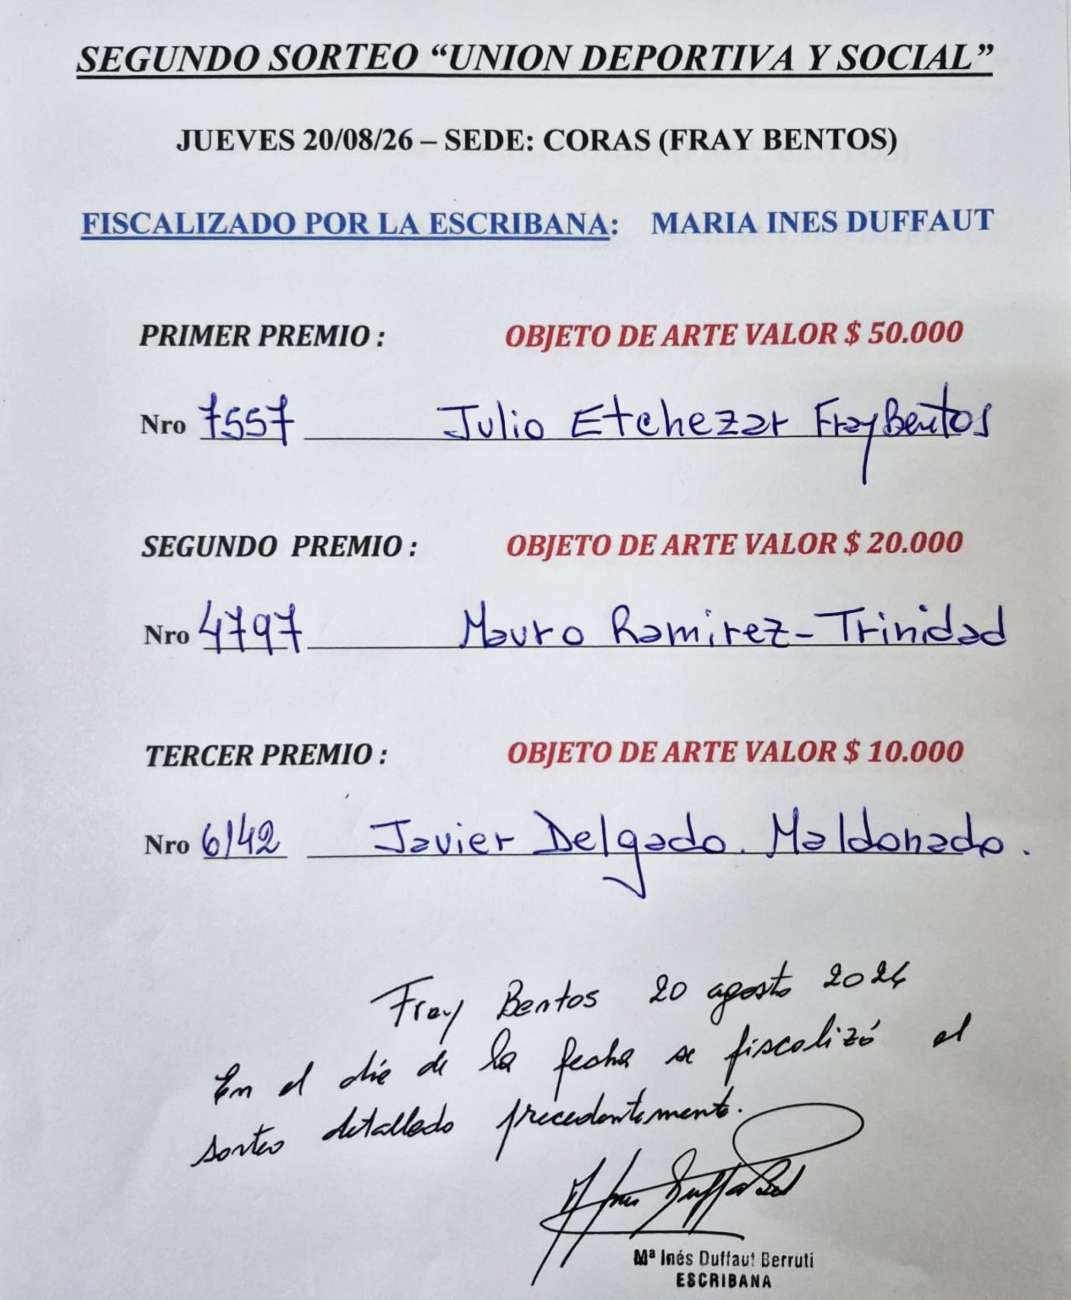 SEGUNDO SORTEO “UNION DEPORTIVA Y SOCIAL”
JUEVES 20/08/26 – SEDE: CORAS (FRAY BENTOS)
FISCALIZADO POR LA ESCRIBANA: MARIA INES DUFFAUT
PRIMER PREMIO : OBJETO DE ARTE VALOR $ 50.000
Nro 7557 Julio Etchezar Fray Bentos
SEGUNDO PREMIO : OBJETO DE ARTE VALOR $ 20.000
Nro 4797 Mauro Ramirez-Trinidad
TERCER PREMIO : OBJETO DE ARTE VALOR $ 10.000
Nro 6142 Javier Delgado. Maldonado.
Fray Bentos 20 agosto
En el día de la fecha se fiscalizó el
sorteo detallado precedentemente.
Mª Inés Duffaut Berruti
ESCRIBANA